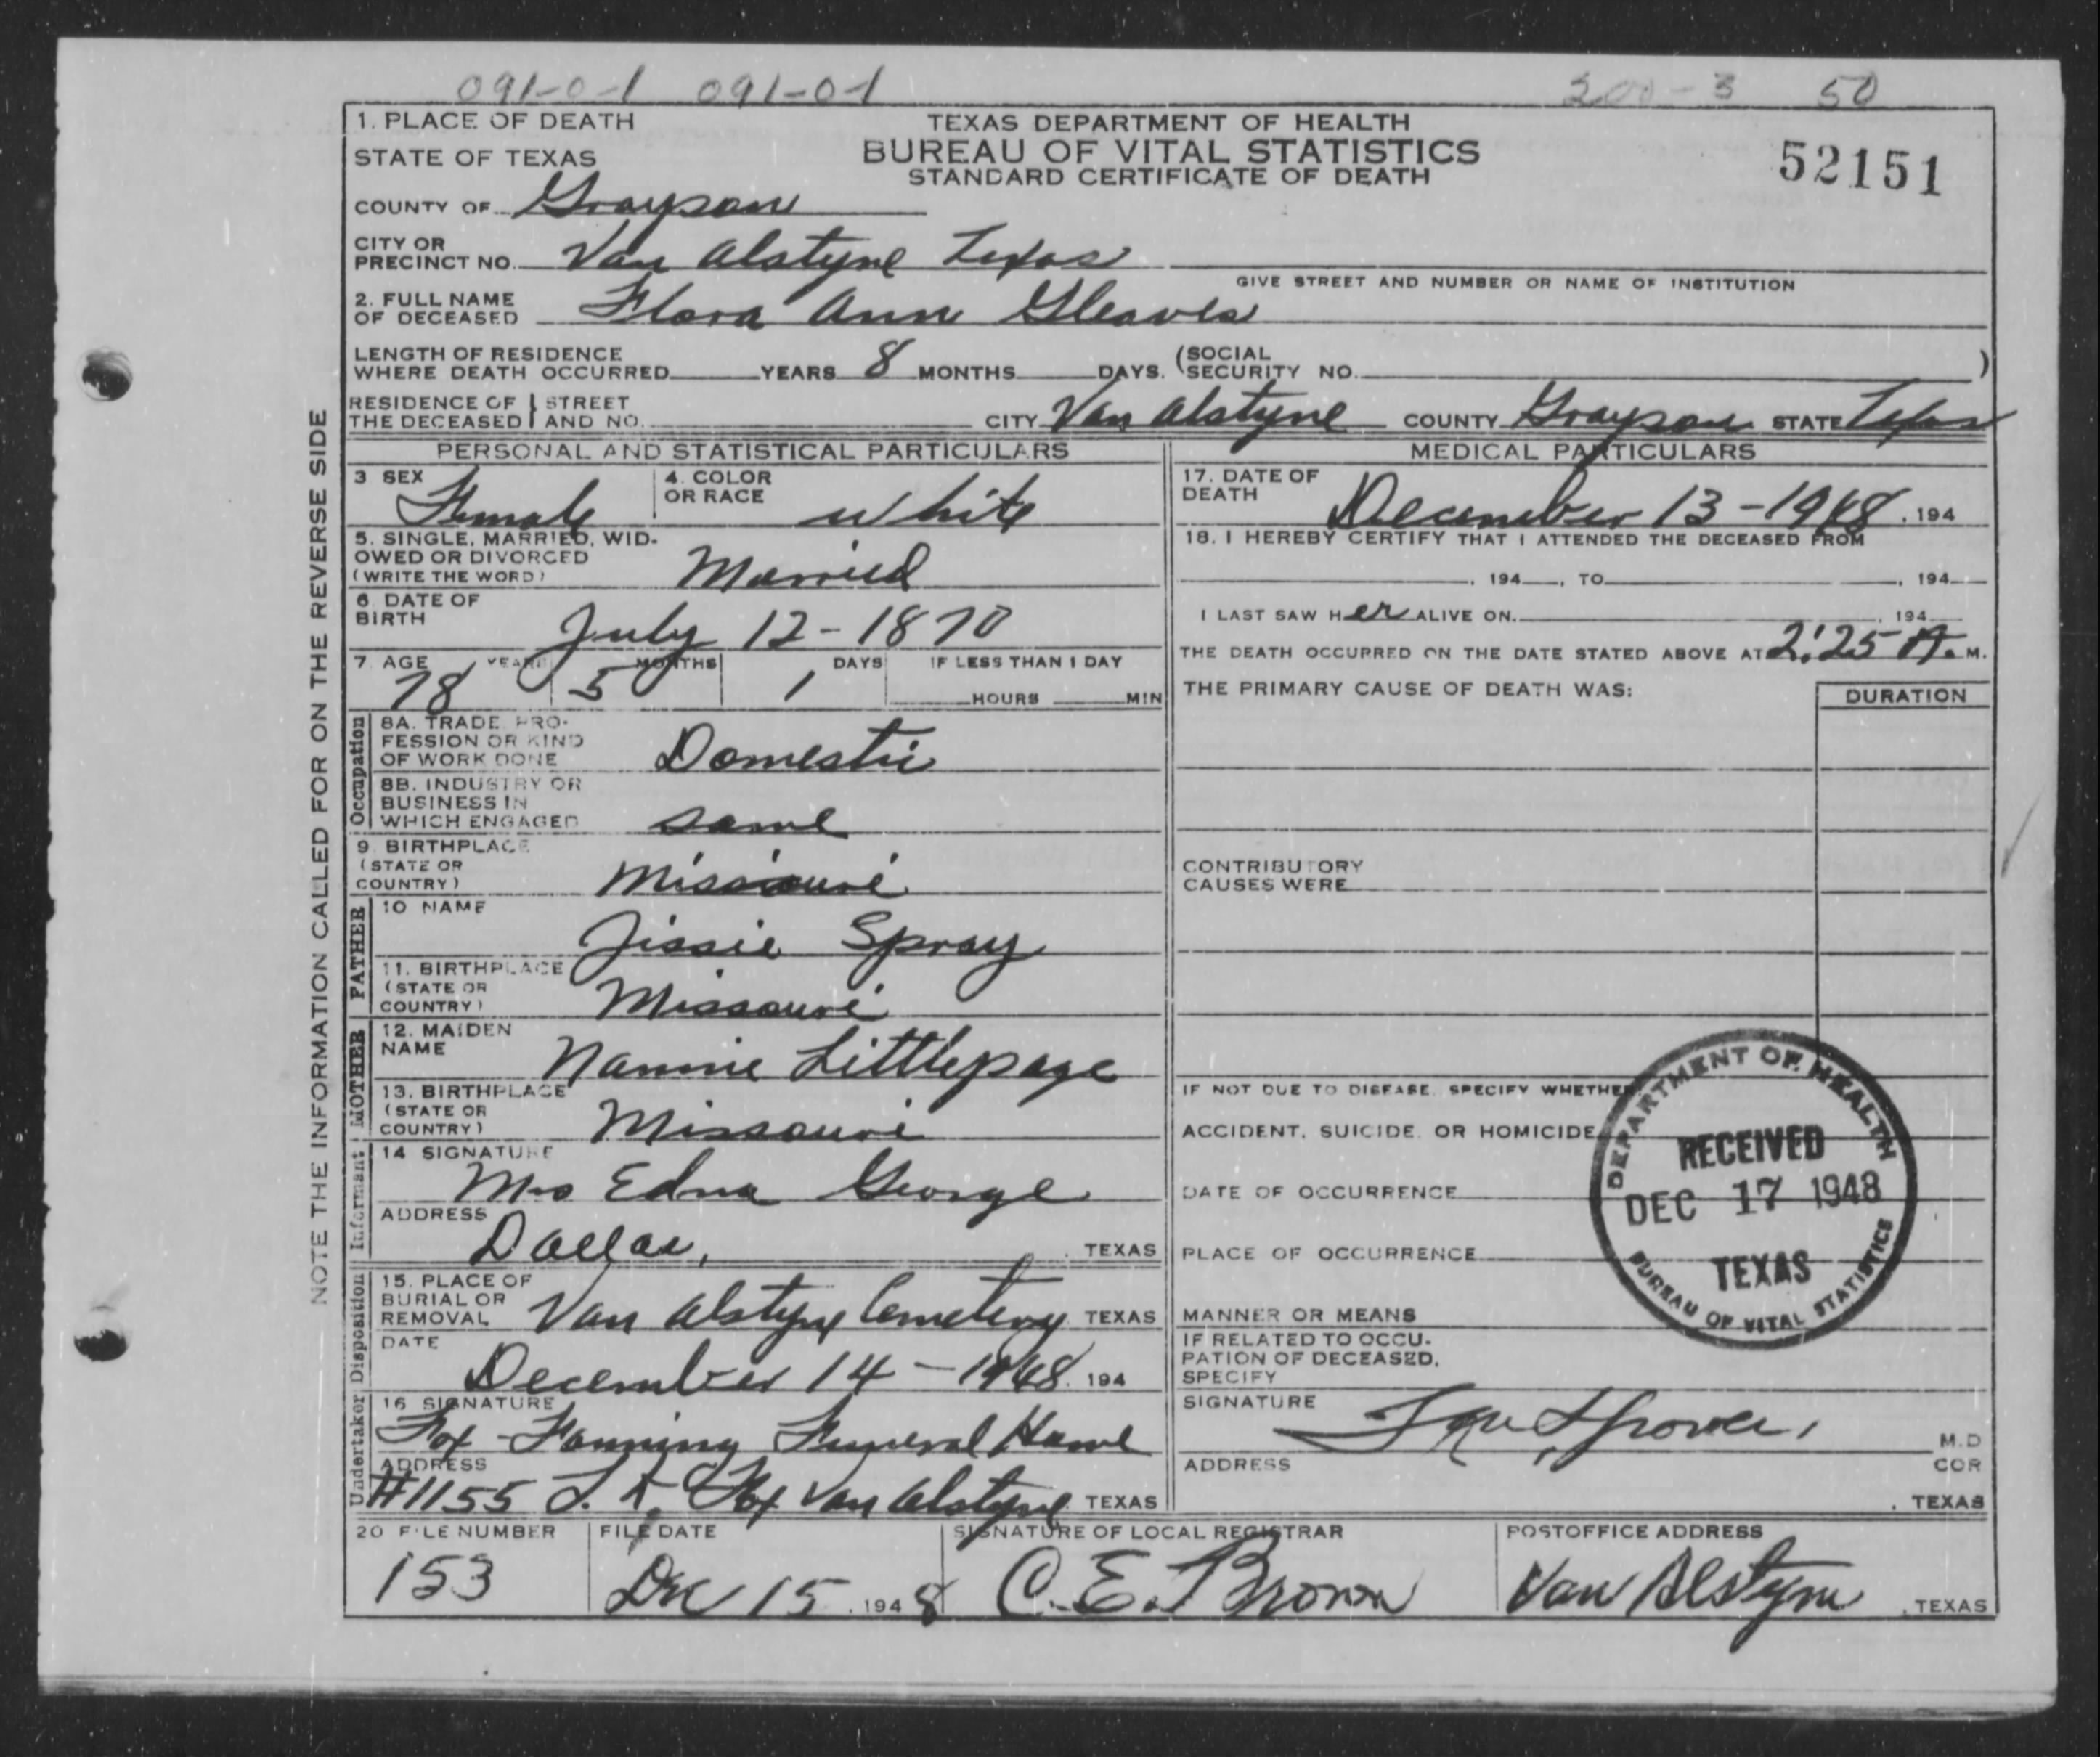 091-0-1 091-0-1 200-3 50
1. PLACE OF DEATH
STATE OF TEXAS
TEXAS DEPARTMENT OF HEALTH
BUREAU OF VITAL STATISTICS
STANDARD CERTIFICATE OF DEATH
52151
COUNTY OF Grayson
CITY OR PRECINCT NO. Van Alstyne Texas
GIVE STREET AND NUMBER OR NAME OF INSTITUTION
2. FULL NAME OF DECEASED Flora Ann Gleaves
LENGTH OF RESIDENCE WHERE DEATH OCCURRED YEARS 8 MONTHS DAYS. (SOCIAL SECURITY NO. )
RESIDENCE OF THE DECEASED STREET AND NO. CITY Van Alstyne COUNTY Grayson STATE Texas
PERSONAL AND STATISTICAL PARTICULARS
3 SEX Female
4. COLOR OR RACE White
5. SINGLE, MARRIED, WIDOWED OR DIVORCED (WRITE THE WORD) Married
6. DATE OF BIRTH July 12-1870
7. AGE YEARS 78 MONTHS 5 DAYS 1 IF LESS THAN 1 DAY HOURS MIN
Occupation
8A. TRADE, PROFESSION OR KIND OF WORK DONE Domestic
8B. INDUSTRY OR BUSINESS IN WHICH ENGAGED same
9. BIRTHPLACE (STATE OR COUNTRY) Missouri
FATHER
10 NAME Jissie Spray
11. BIRTHPLACE (STATE OR COUNTRY) Missouri
MOTHER
12. MAIDEN NAME Nannie Littlepage
13. BIRTHPLACE (STATE OR COUNTRY) Missouri
Informant
14 SIGNATURE Mrs Edna George
ADDRESS Dallas, TEXAS
Disposition
15. PLACE OF BURIAL OR REMOVAL Van Alstyne Cemetery TEXAS
DATE December 14-1948. 194
Undertaker
16 SIGNATURE Fox-Fanning Funeral Home
ADDRESS #1155 Fox Van Alstyne TEXAS
MEDICAL PARTICULARS
17. DATE OF DEATH December 13-1948. 194
18. I HEREBY CERTIFY THAT I ATTENDED THE DECEASED FROM
, 194 , TO , 194
I LAST SAW Her ALIVE ON , 194
THE DEATH OCCURRED ON THE DATE STATED ABOVE AT 2:25 A. M.
THE PRIMARY CAUSE OF DEATH WAS: DURATION
CONTRIBUTORY CAUSES WERE
IF NOT DUE TO DISEASE, SPECIFY WHETHER
ACCIDENT, SUICIDE, OR HOMICIDE
DATE OF OCCURRENCE
PLACE OF OCCURRENCE
MANNER OR MEANS
IF RELATED TO OCCUPATION OF DECEASED, SPECIFY
DEPARTMENT OF HEALTH
RECEIVED
DEC 17 1948
TEXAS
BUREAU OF VITAL STATISTICS
SIGNATURE M.D
ADDRESS COR
, TEXAS
20 FILE NUMBER 153
FILE DATE Dec 15, 1948
SIGNATURE OF LOCAL REGISTRAR C.E. Brown
POSTOFFICE ADDRESS Van Alstyne, TEXAS
NOTE THE INFORMATION CALLED FOR ON THE REVERSE SIDE